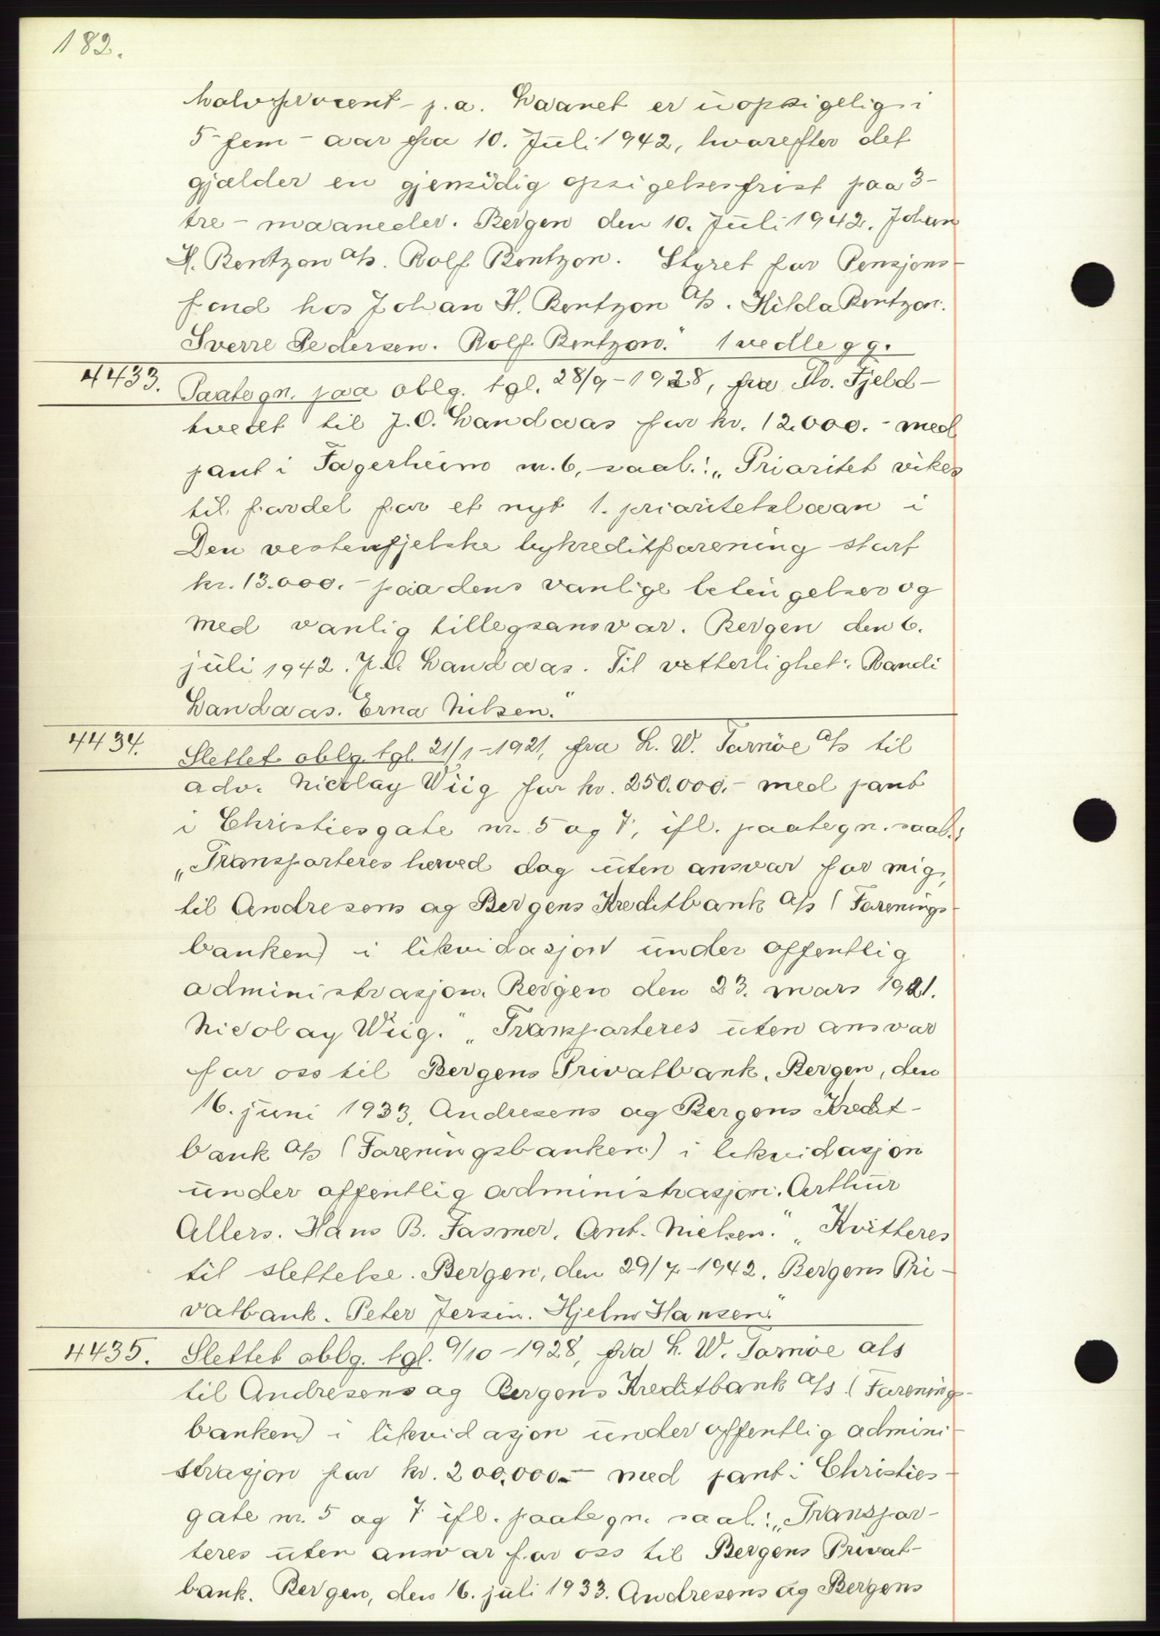 182.
halvprocent - p.a. Laanet er uopsigelig i
5 - fem - aar fra 10. Juli 1942, hvorefter det
gjælder en gjensidig opsigelsesfrist paa 3 -
tre - maaneder. Bergen den 10. Juli 1942. Johan
H. Bentzon a/s. Rolf Bentzon. Styret for Pensjons-
fond hos Johan H. Bentzon a/s. Hilda Bentzon.
Sverre Pedersen. Rolf Bentzon." 1 vedlegg.
4433. Paategn. paa oblg. tgl. 28/9 - 1928, fra Th. Fjeld-
tvedt til J.O. Landaas for kr. 12.000.- med
pant i Fagerheim nr. 6, saal.: „Prioritet vikes
til fordel for et nyt 1. prioritetslaan i
Den vestenfjelske bykreditforening stort
kr. 13.000.- paa dens vanlige betingelser og
med vanlig tillegsansvar. Bergen den 6.
juli 1942. J.O. Landaas. Til vitterlighet: Randi
Landaas. Erna Nilsen."
4434. Slettet oblg. tgl. 21/1 - 1921, fra L. W. Tornöe a/s til
adv. Nicolay Wiig for kr. 250.000.- med pant
i Christiesgate nr. 5 og 7, ifl. paategn. saal.:
„Transporteres herved dog uten ansvar for mig,
til Andresens og Bergens Kreditbank a/s (Forenings-
banken) i likvidasjon under offentlig
administrasjon. Bergen den 23. mars 1921.
Nicolay Wiig." „Transporteres uten ansvar
for oss til Bergens Privatbank. Bergen, den
16. juni 1933. Andresens og Bergens Kredit-
bank a/s (Foreningsbanken) i likvidasjon
under offentlig administrasjon. Arthur
Allers. Hans B. Fasmer. Ant. Nielsen." „Kvitteres
til slettelse. Bergen, den 29/7 - 1942. Bergens Pri-
vatbank. Peter Jersin. Hjelm Hansen."
4435. Slettet oblg. tgl. 9/10 - 1928, fra L. W. Tornöe a/s
til Andresens og Bergens Kreditbank a/s (Forenings-
banken) i likvidasjon under offentlig admini-
strasjon for kr. 200.000.- med pant i Christies-
gate nr. 5 og 7 ifl. paategn. saal.: „Transpor-
teres uten ansvar for oss til Bergens Privat-
bank. Bergen, den 16. juli 1933. Andresens og Bergens